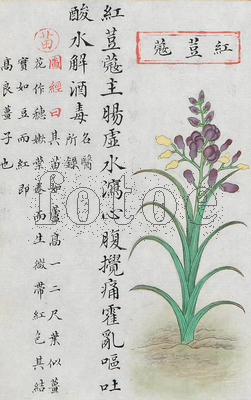 紅荳蔻
紅荳蔻主腸虛水瀉心腹攪痛霍亂嘔吐
酸水解酒毒名醫所錄
苗
圖經曰其苗如蘆高一二尺葉似薑
花作穗嫩葉卷而生微帶紅色其結
實如豆而紅即
高良薑子也
fotoe